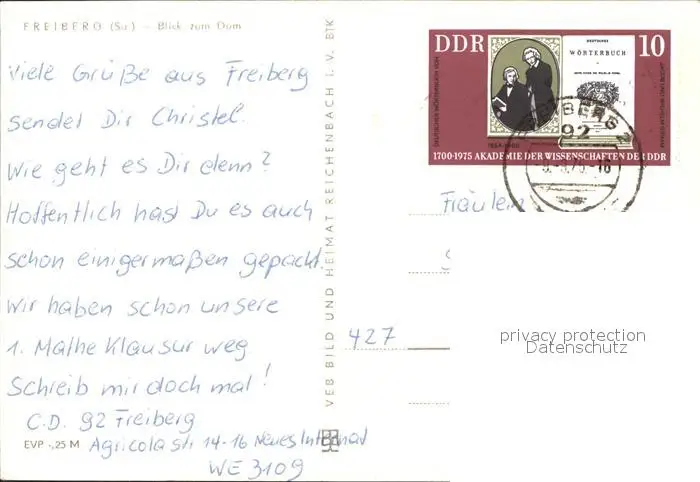 FREIBERG (Sa.) – Blick zum Dom
Viele Grüße aus Freiberg
sendet Dir Christel.
Wie geht es Dir denn?
Hoffentlich hast Du es auch
schon einigermaßen gepackt.
Wir haben schon unsere
1. Mathe Klausur weg
Schreib mir doch mal!
C.D. 92 Freiberg
EVP -,25 M Agricolastr 14-16 Neues Internat
WE 3109
VEB BILD UND HEIMAT REICHENBACH I. V. BTK
DDR
10
DEUTSCHES
WÖRTERBUCH
1854-1960
1700-1975 AKADEMIE DER WISSENSCHAFTEN DER DDR
FREIBERG 2
92
Fräulein
427
privacy protection
Datenschutz